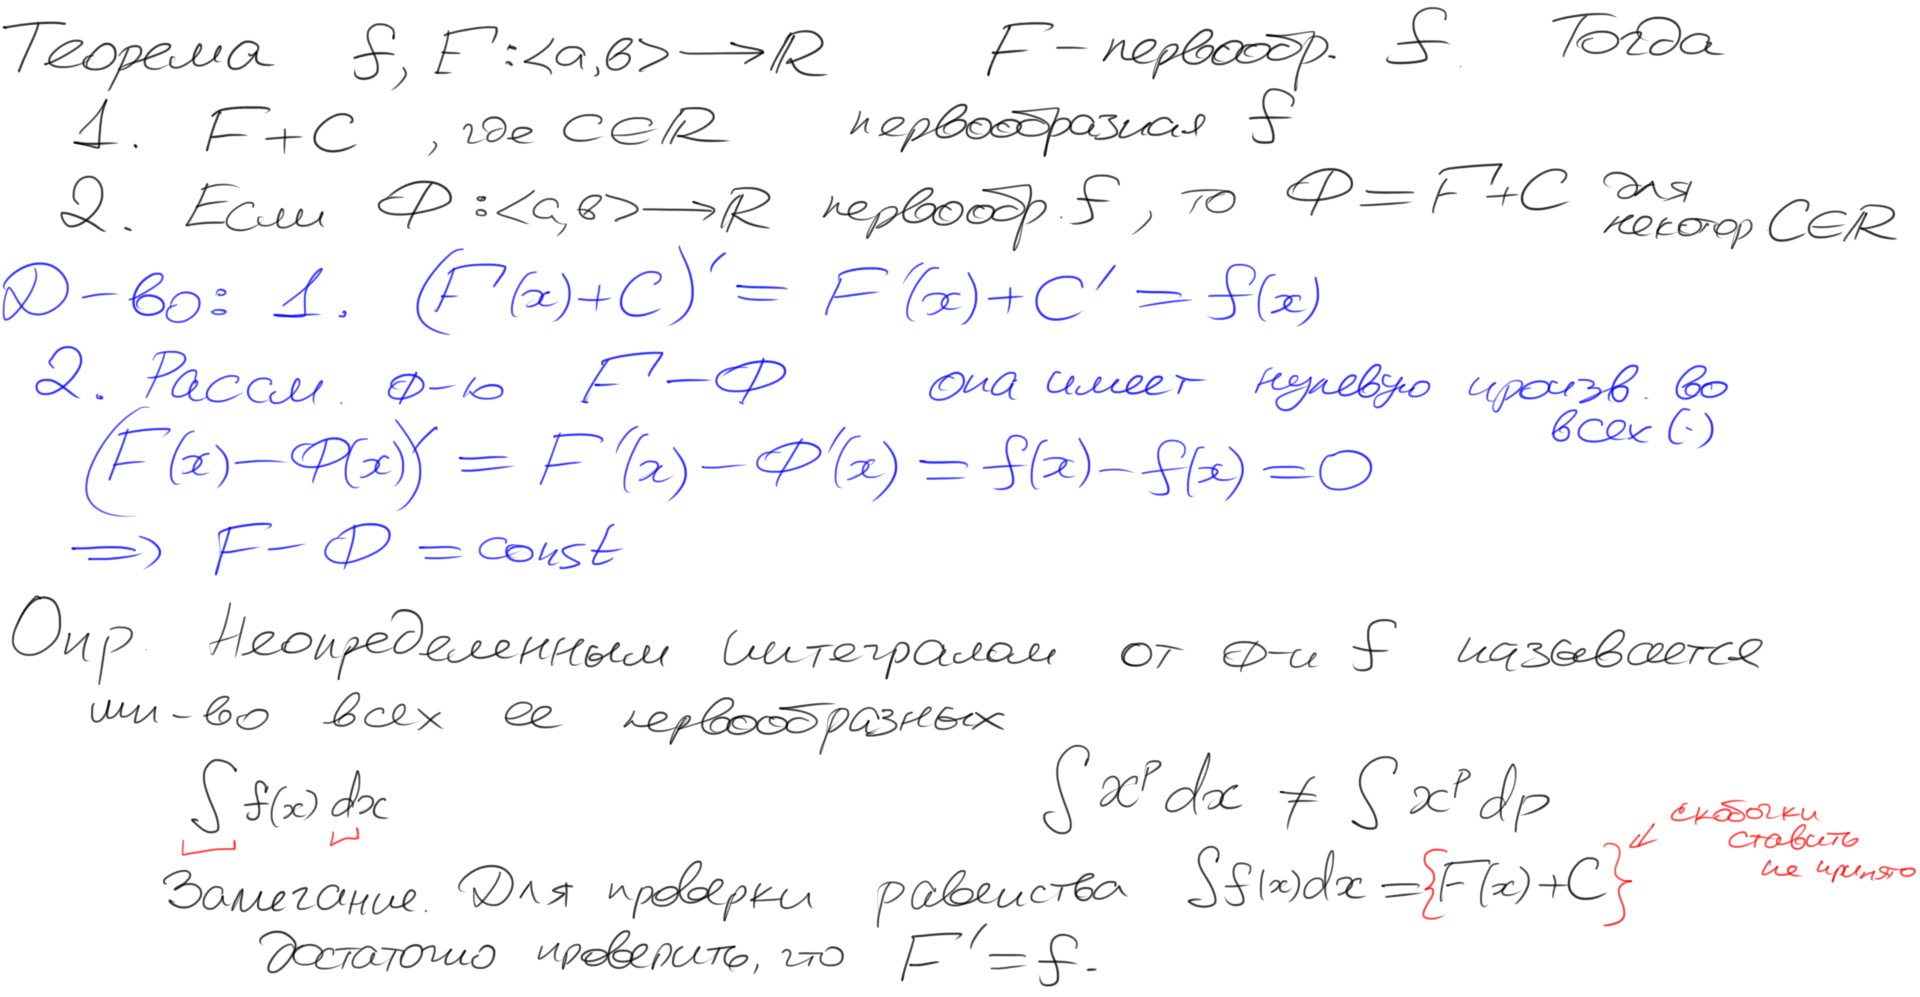 Теорема f, F : <a, b> → ℝ F – первообр. f. Тогда
1. F + C , где C ∈ ℝ первообразная f
2. Если Ф : <a, b> → ℝ первообр. f, то Ф = F + C для некотор C ∈ ℝ
Д-во: 1. (F(x) + C)' = F'(x) + C' = f(x)
2. Рассм. ф-ю F – Ф она имеет нулевую произв. во всех (·)
(F(x) – Ф(x))' = F'(x) – Ф'(x) = f(x) – f(x) = 0
⇒ F – Ф = const
Опр. Неопределенным интегралом от ф-и f называется
мн-во всех ее первообразных
∫ f(x) dx ∫ x^p dx ≠ ∫ x^p dp
скобочки
ставить
не принято
Замечание. Для проверки равенства ∫ f(x) dx = {F(x) + C}
достаточно проверить, что F' = f.